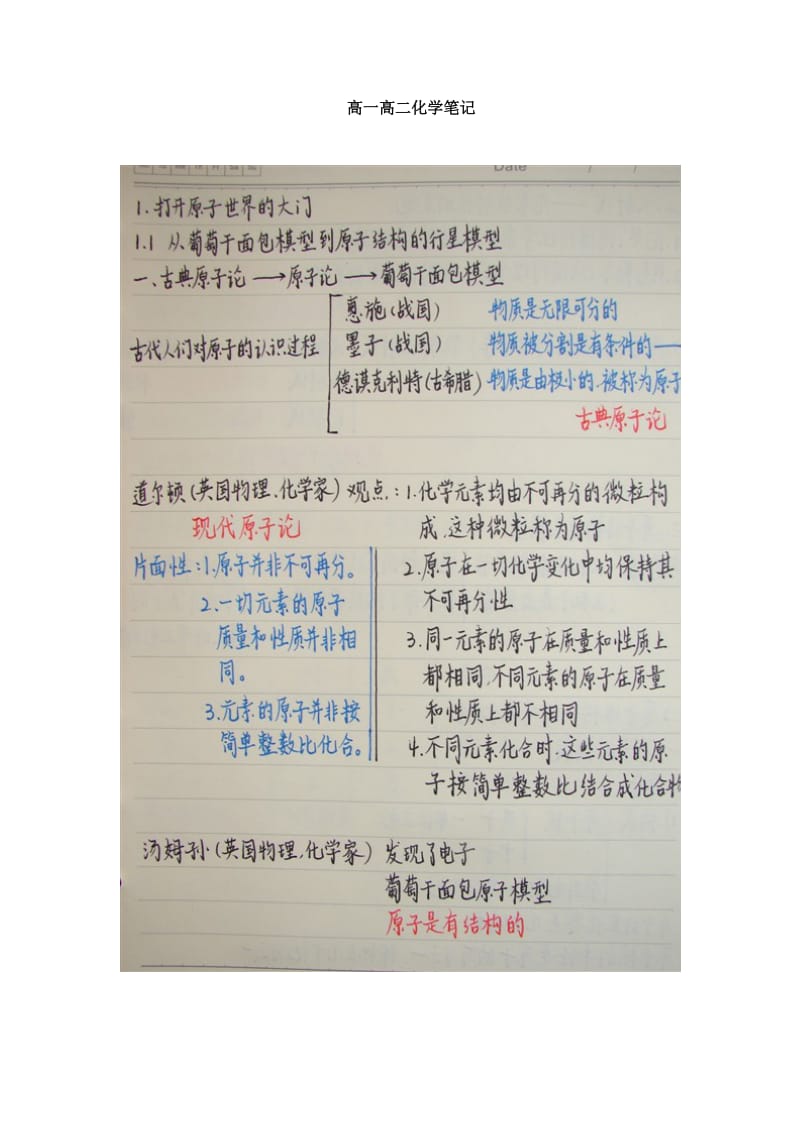 高一高二化学笔记
Date / /
1.打开原子世界的大门
1.1 从葡萄干面包模型到原子结构的行星模型
一、古典原子论→原子论→葡萄干面包模型
惠施(战国) 物质是无限可分的
古代人们对原子的认识过程 墨子(战国) 物质被分割是有条件的一
德谟克利特(古希腊) 物质是由极小的、被称为原子
古典原子论
道尔顿(英国物理、化学家)观点:1.化学元素均由不可再分的微粒构
现代原子论 成,这种微粒称为原子
片面性:1.原子并非不可再分。 2.原子在一切化学变化中均保持其
2.一切元素的原子 不可再分性
质量和性质并非相 3.同一元素的原子在质量和性质上
同。 都相同,不同元素的原子在质量
3.元素的原子并非按 和性质上都不相同
简单整数比化合。 4.不同元素化合时,这些元素的原
子按简单整数比结合成化合物
汤姆孙(英国物理,化学家) 发现了电子
葡萄干面包原子模型
原子是有结构的